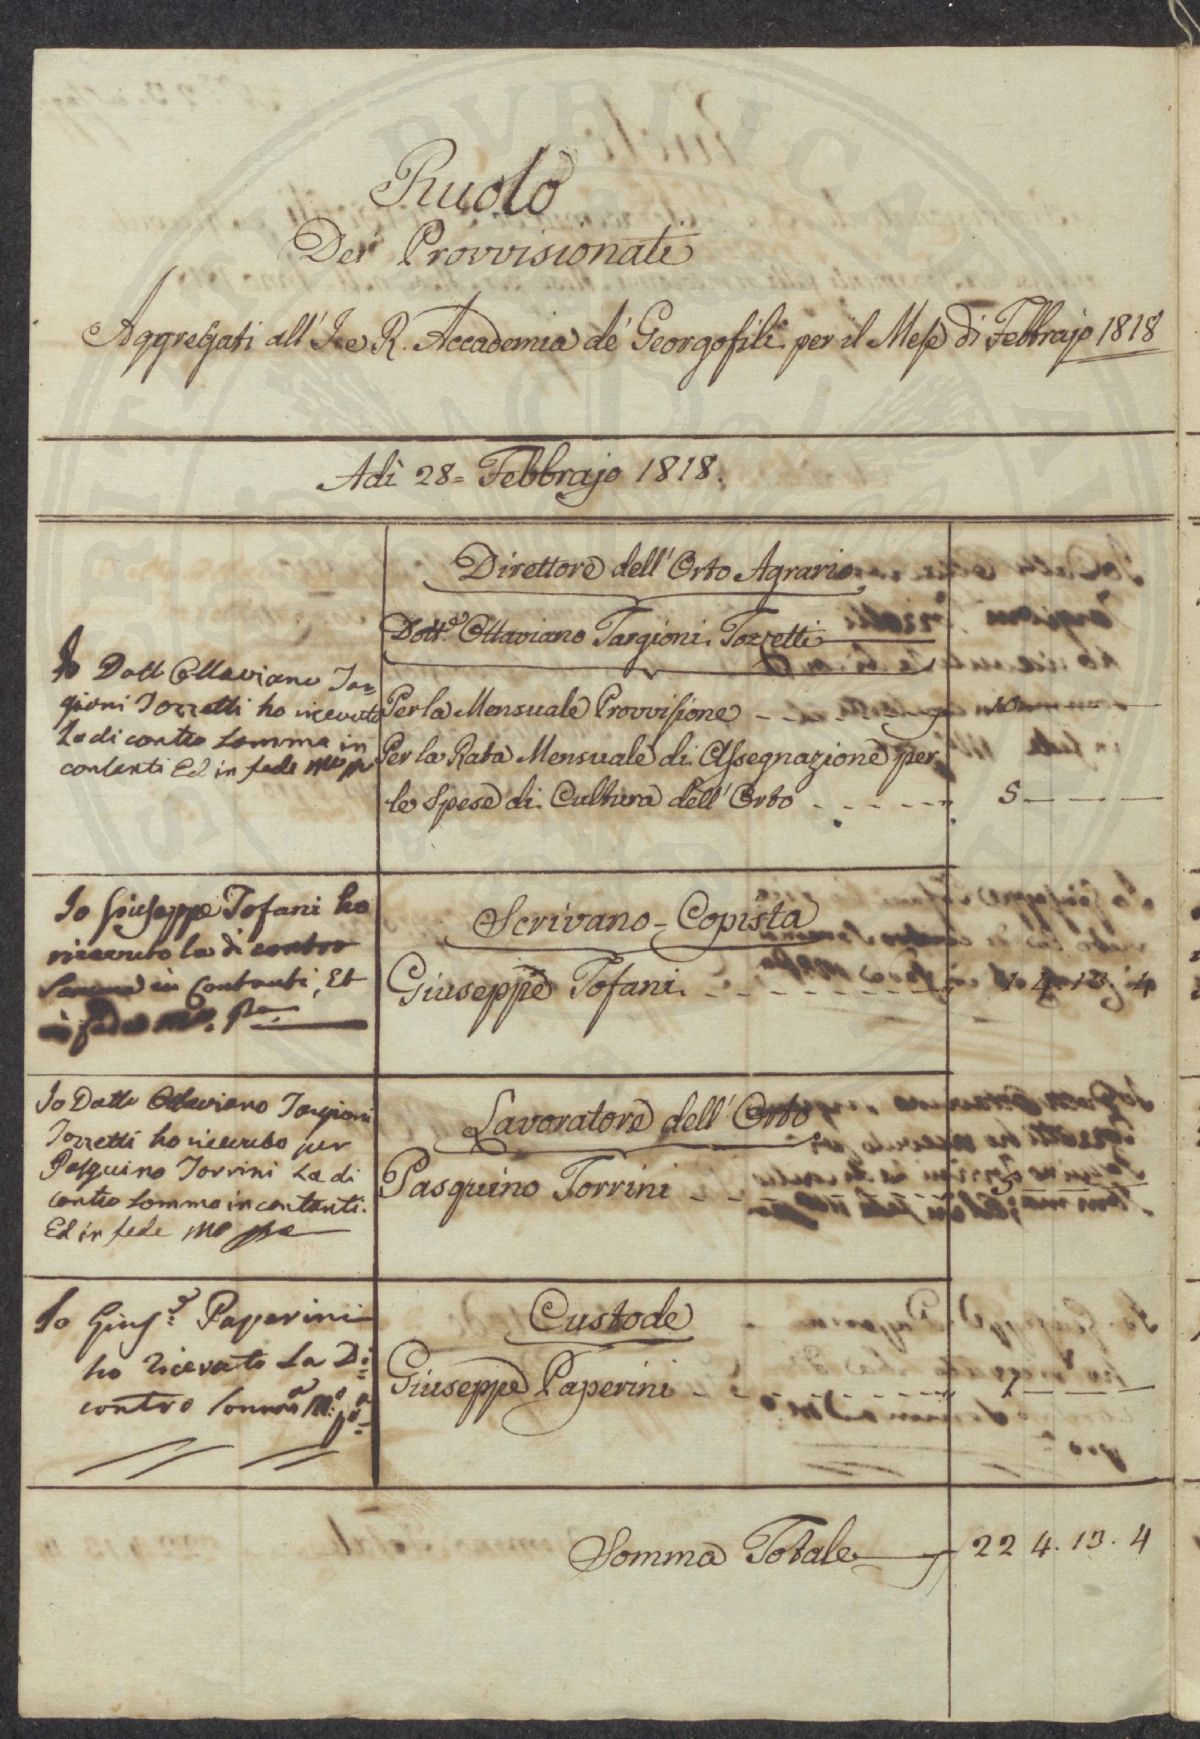 Ruolo
Dei Provvisionati
Aggregati all' I. e R. Accademia de' Georgofili per il Mese di Febbrajo 1818
Adì 28= Febbrajo 1818.
Direttore dell' Orto Agrario
Dott.e Ottaviano Targioni Tozzetti
Io Dott Ottaviano Tar=
gioni Tozzetti ho ricevuto
La di contro Somma in
contanti Ed in fede Mo pp
Per la Mensuale Provvisione - - - 10 - - -
Per la Rata Mensuale di Assegnazione per
le Spese di Cultura dell' Orto - - - - - 5 - - -
Io Giuseppe Tofani ho
ricevuto la di contro
Somma in Contanti, Et
in fede Mo. ppa
Scrivano - Copista
Giuseppe Tofani. - - - - - 4. 13. 4
Io Dotto Ottaviano Targioni
Tozzetti ho ricevuto per
Pasquino Torrini La di
contro Somma in contanti.
Ed in fede Mo ppa
Lavoratore dell' Orto
Pasquino Torrini - - -
Io Gius.e Paperini
ho ricevuto La Di
contro Somma Mo. pa
Custode
Giuseppe Paperini - - - - -
Somma Totale 22 4. 13. 4